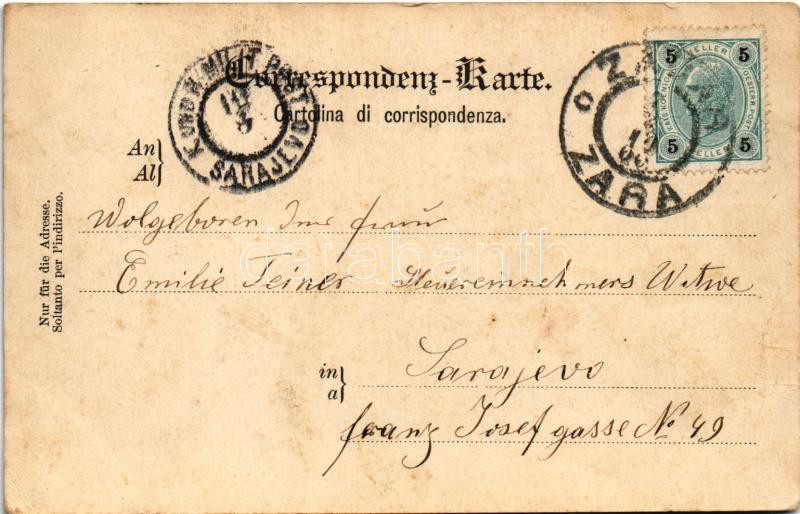 Correspondenz-Karte.
Cartolina di corrispondenza.
An
Al
Nur für die Adresse.
Soltanto per l'indirizzo.
K. UND K. MILIT. POST
SARAJEVO
ZARA
ZARA
5 HELLER 5
KAIS. KOENIGL. OESTERR. POST.
5 HELLER 5
Wolgeboren frau
Emilie Teiner Steuereinnehmers Witwe
in
a
Sarajevo
franz Josef gasse No 49
darabanth